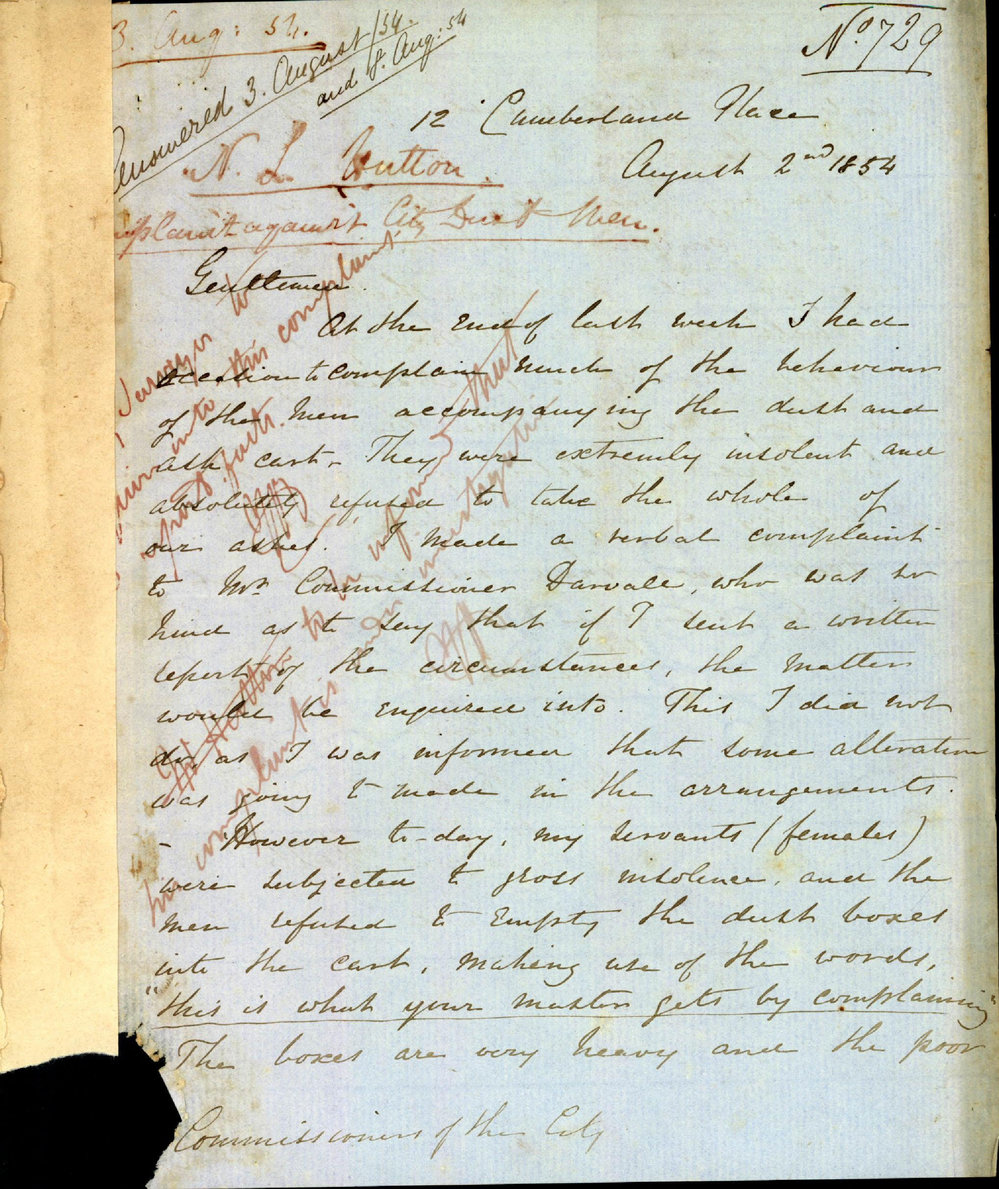 3. Aug: 54.
Answered 3. August/54.
and 8. Aug: 54
No. 729
12 Cumberland Place
August 2nd 1854
N. L. Hutton.
plaint against City Dust Men.
Gentlemen
At the end of last week I had
occasion to complain much of the behaviour
of the men accompanying the dust and
ash cart. They were extremely insolent and
absolutely refused to take the whole of
our ashes. I made a verbal complaint
to Mr. Commissioner Darvall, who was so
kind as to say that if I sent a written
report of the circumstances, the matter
would be enquired into. This I did not
do, as I was informed that some alteration
was going to made in the arrangements.
- However to-day, my servants (females)
were subjected to gross insolence, and the
men refused to empty the dust boxes
into the cart, making use of the words,
"this is what your master gets by complaining"
The boxes are very heavy and the poor
Commissioners of the City
Surveyor to
into this complaint
report facts.
Mr Hutton to be informed that
his complaint is under investigation